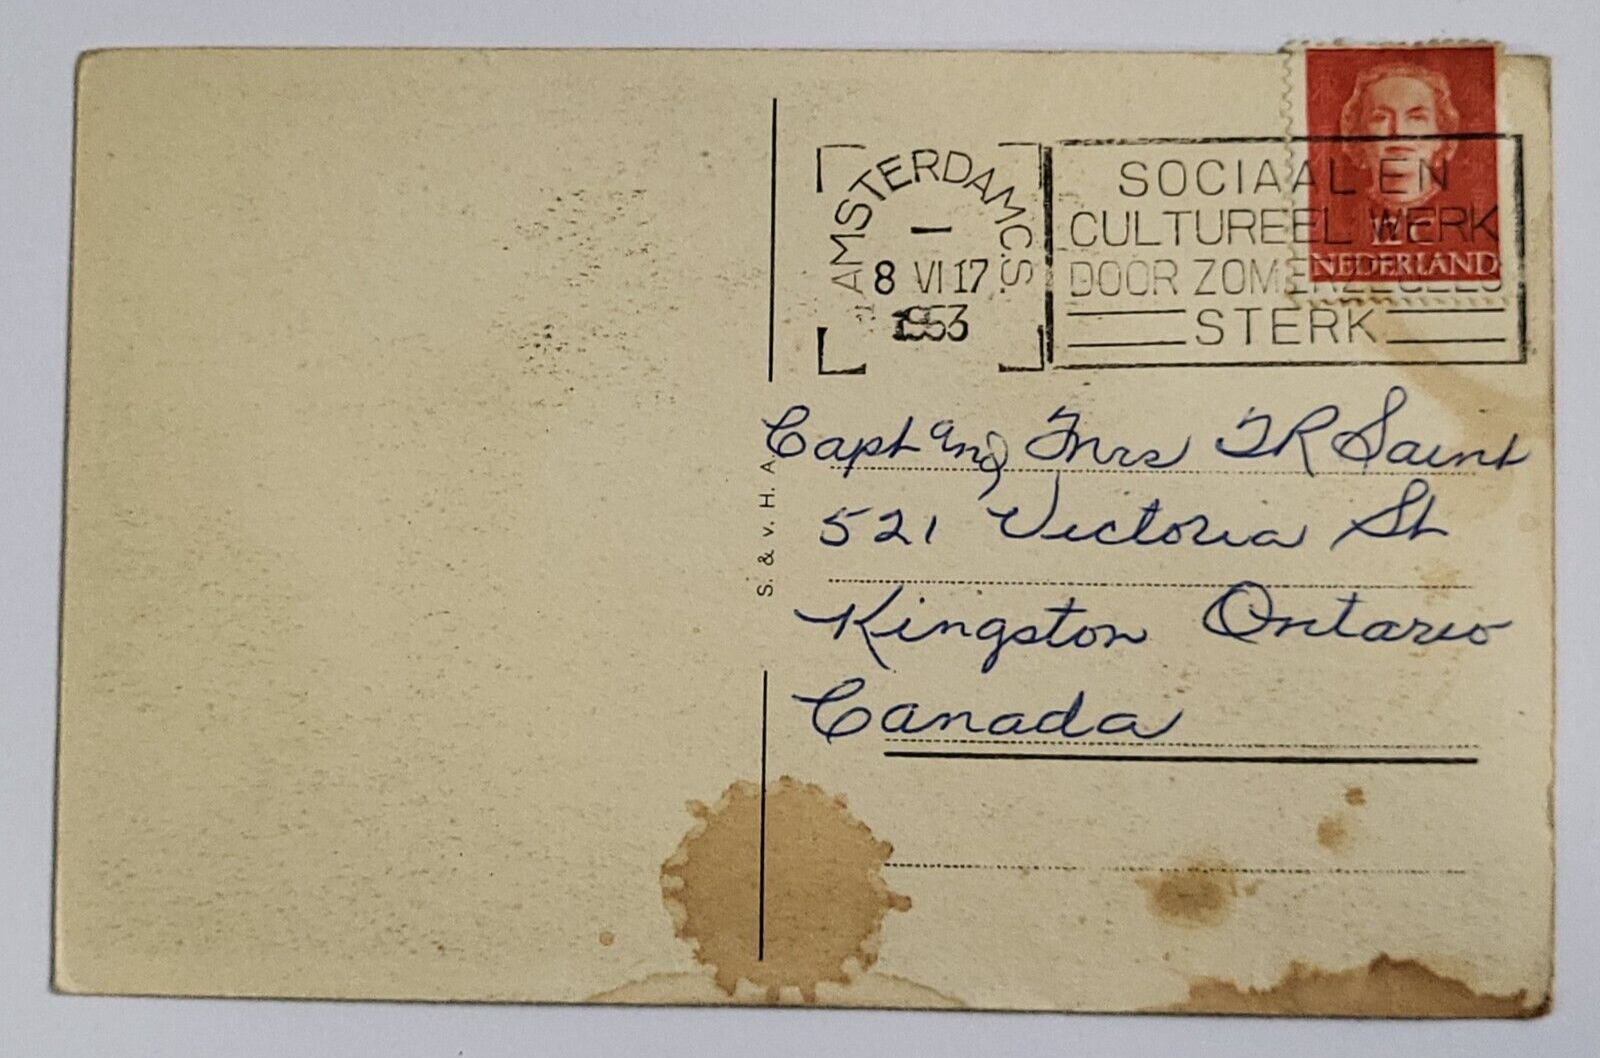 AMSTERDAM C.S.
1
8 VI 17
1953
SOCIAAL EN
CULTUREEL WERK
DOOR ZOMERZEGELS
STERK
12 C
NEDERLAND
Capt and Mrs T R Saint
521 Victoria St
Kingston Ontario
Canada
S. & v. H. A.